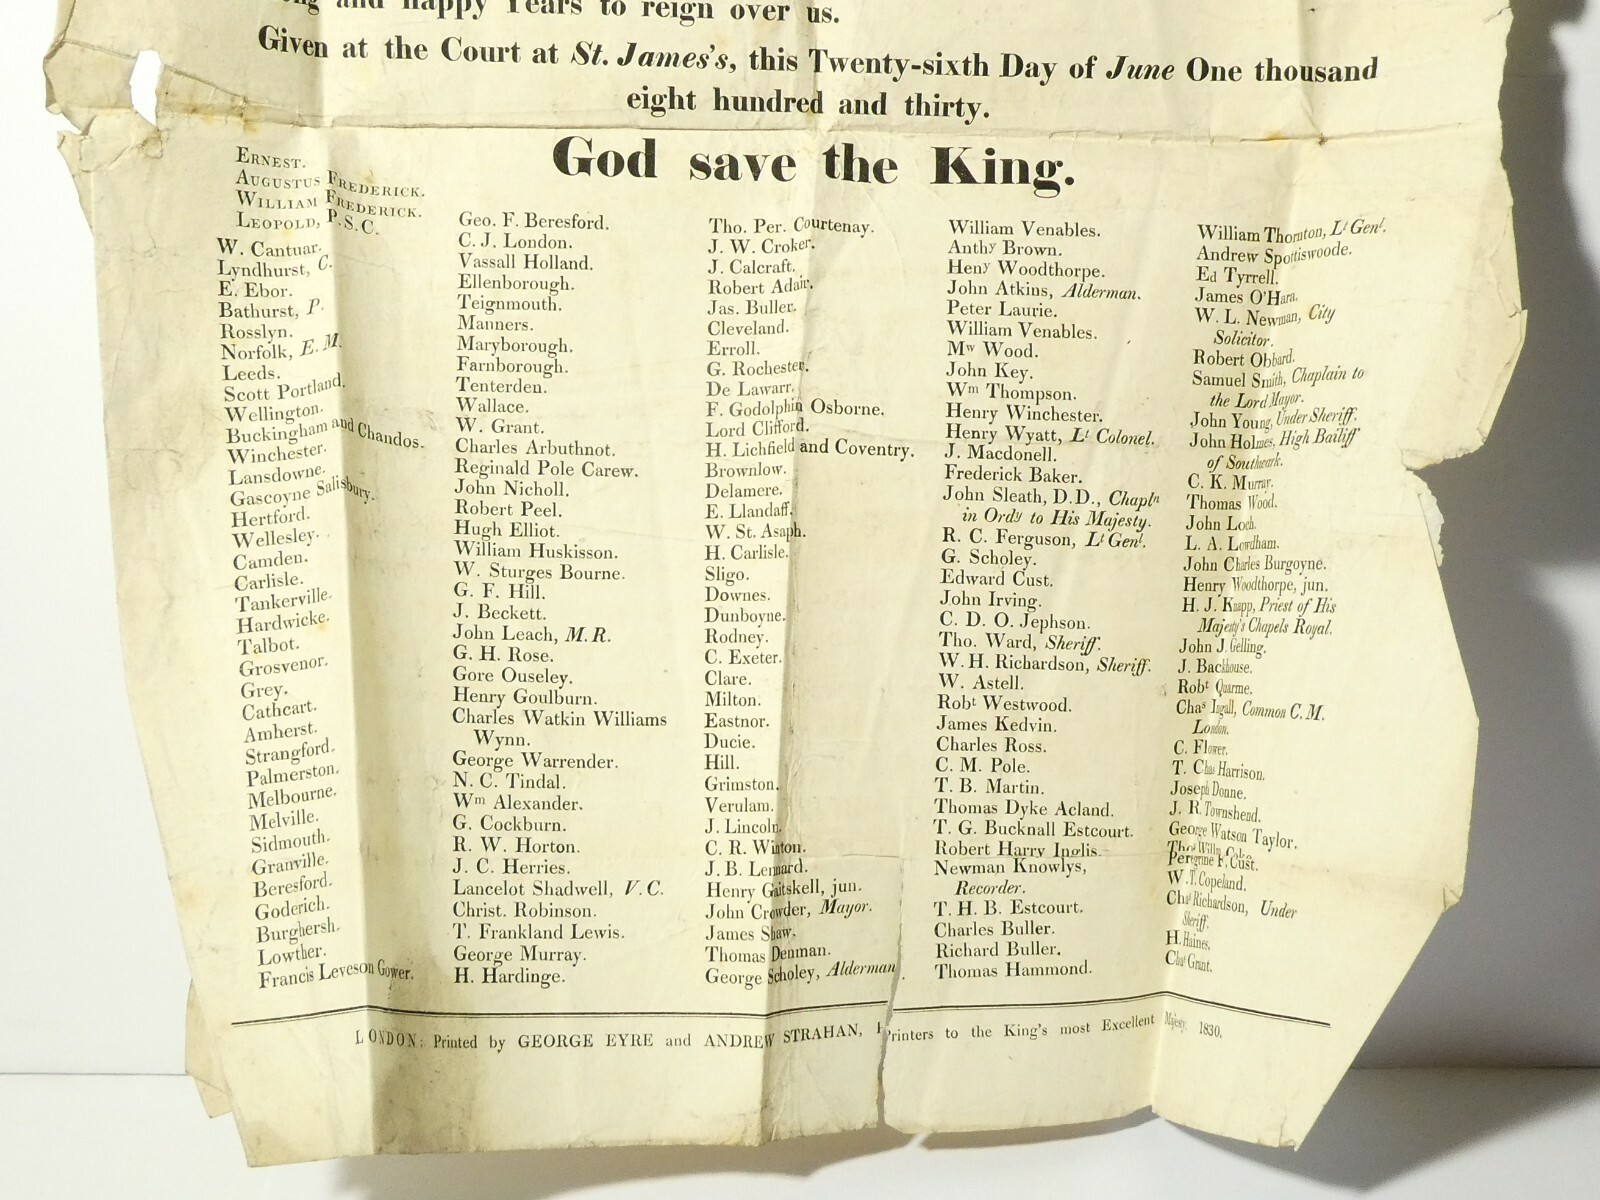 and happy Years to reign over us.
Given at the Court at St. James's, this Twenty-sixth Day of June One thousand
eight hundred and thirty.
God save the King.
ERNEST.
AUGUSTUS FREDERICK.
WILLIAM FREDERICK.
LEOPOLD, P.S.C.
W. Cantuar.
Lyndhurst, C.
E. Ebor.
Bathurst, P.
Rosslyn.
Norfolk, E. M.
Leeds.
Scott Portland.
Wellington.
Buckingham and Chandos.
Winchester.
Lansdowne.
Gascoyne Salisbury.
Hertford.
Wellesley.
Camden.
Carlisle.
Tankerville.
Hardwicke.
Talbot.
Grosvenor.
Grey.
Cathcart.
Amherst.
Strangford.
Palmerston.
Melbourne.
Melville.
Sidmouth.
Granville.
Beresford.
Goderich.
Burghersh.
Lowther.
Francis Leveson Gower.
Geo. F. Beresford.
C. J. London.
Vassall Holland.
Ellenborough.
Teignmouth.
Manners.
Maryborough.
Farnborough.
Tenterden.
Wallace.
W. Grant.
Charles Arbuthnot.
Reginald Pole Carew.
John Nicholl.
Robert Peel.
Hugh Elliot.
William Huskisson.
W. Sturges Bourne.
G. F. Hill.
J. Beckett.
John Leach, M. R.
G. H. Rose.
Gore Ouseley.
Henry Goulburn.
Charles Watkin Williams
Wynn.
George Warrender.
N. C. Tindal.
Wm Alexander.
G. Cockburn.
R. W. Horton.
J. C. Herries.
Lancelot Shadwell, V. C.
Christ. Robinson.
T. Frankland Lewis.
George Murray.
H. Hardinge.
Tho. Per. Courtenay.
J. W. Croker.
J. Calcraft.
Robert Adair.
Jas. Buller.
Cleveland.
Erroll.
G. Rochester.
De Lawarr.
F. Godolphin Osborne.
Lord Clifford.
H. Lichfield and Coventry.
Brownlow.
Delamere.
E. Llandaff.
W. St. Asaph.
H. Carlisle.
Sligo.
Downes.
Dunboyne.
Rodney.
C. Exeter.
Clare.
Milton.
Eastnor.
Ducie.
Hill.
Grimston.
Verulam.
J. Lincoln.
C. R. Winton.
J. B. Lennard.
Henry Gaitskell, jun.
John Crowder, Mayor.
James Shaw.
Thomas Denman.
George Scholey, Alderman.
William Venables.
Anthy Brown.
Heny Woodthorpe.
John Atkins, Alderman.
Peter Laurie.
William Venables.
Mw Wood.
John Key.
Wm Thompson.
Henry Winchester.
Henry Wyatt, Lt Colonel.
J. Macdonell.
Frederick Baker.
John Sleath, D.D., Chapln
in Ordy to His Majesty.
R. C. Ferguson, Lt Genl.
G. Scholey.
Edward Cust.
John Irving.
C. D. O. Jephson.
Tho. Ward, Sheriff.
W. H. Richardson, Sheriff.
W. Astell.
Robt Westwood.
James Kedvin.
Charles Ross.
C. M. Pole.
T. B. Martin.
Thomas Dyke Acland.
T. G. Bucknall Estcourt.
Robert Harry Inglis.
Newman Knowlys,
Recorder.
T. H. B. Estcourt.
Charles Buller.
Richard Buller.
Thomas Hammond.
William Thornton, Lt Genl.
Andrew Spottiswoode.
Ed Tyrrell.
James O'Hara.
W. L. Newman, City
Solicitor.
Robert Obbard.
Samuel Smith, Chaplain to
the Lord Mayor.
John Young, Under Sheriff.
John Holmes, High Bailiff
of Southwark.
C. K. Murray.
Thomas Wood.
John Loch.
L. A. Lowdham.
John Charles Burgoyne.
Henry Woodthorpe, jun.
H. J. Knapp, Priest of His
Majesty's Chapels Royal.
John J. Gelling.
J. Backhouse.
Robt Quarme.
Chas Ingall, Common C. M.
London.
C. Flower.
T. Chas Harrison.
Joseph Donne.
J. R. Townshend.
George Watson Taylor.
Peregrine F. Cust.
W. T. Copeland.
Chas Richardson, Under
Sheriff.
H. Haines.
Chas Grant.
LONDON: Printed by GEORGE EYRE and ANDREW STRAHAN, Printers to the King's most Excellent Majesty. 1830.